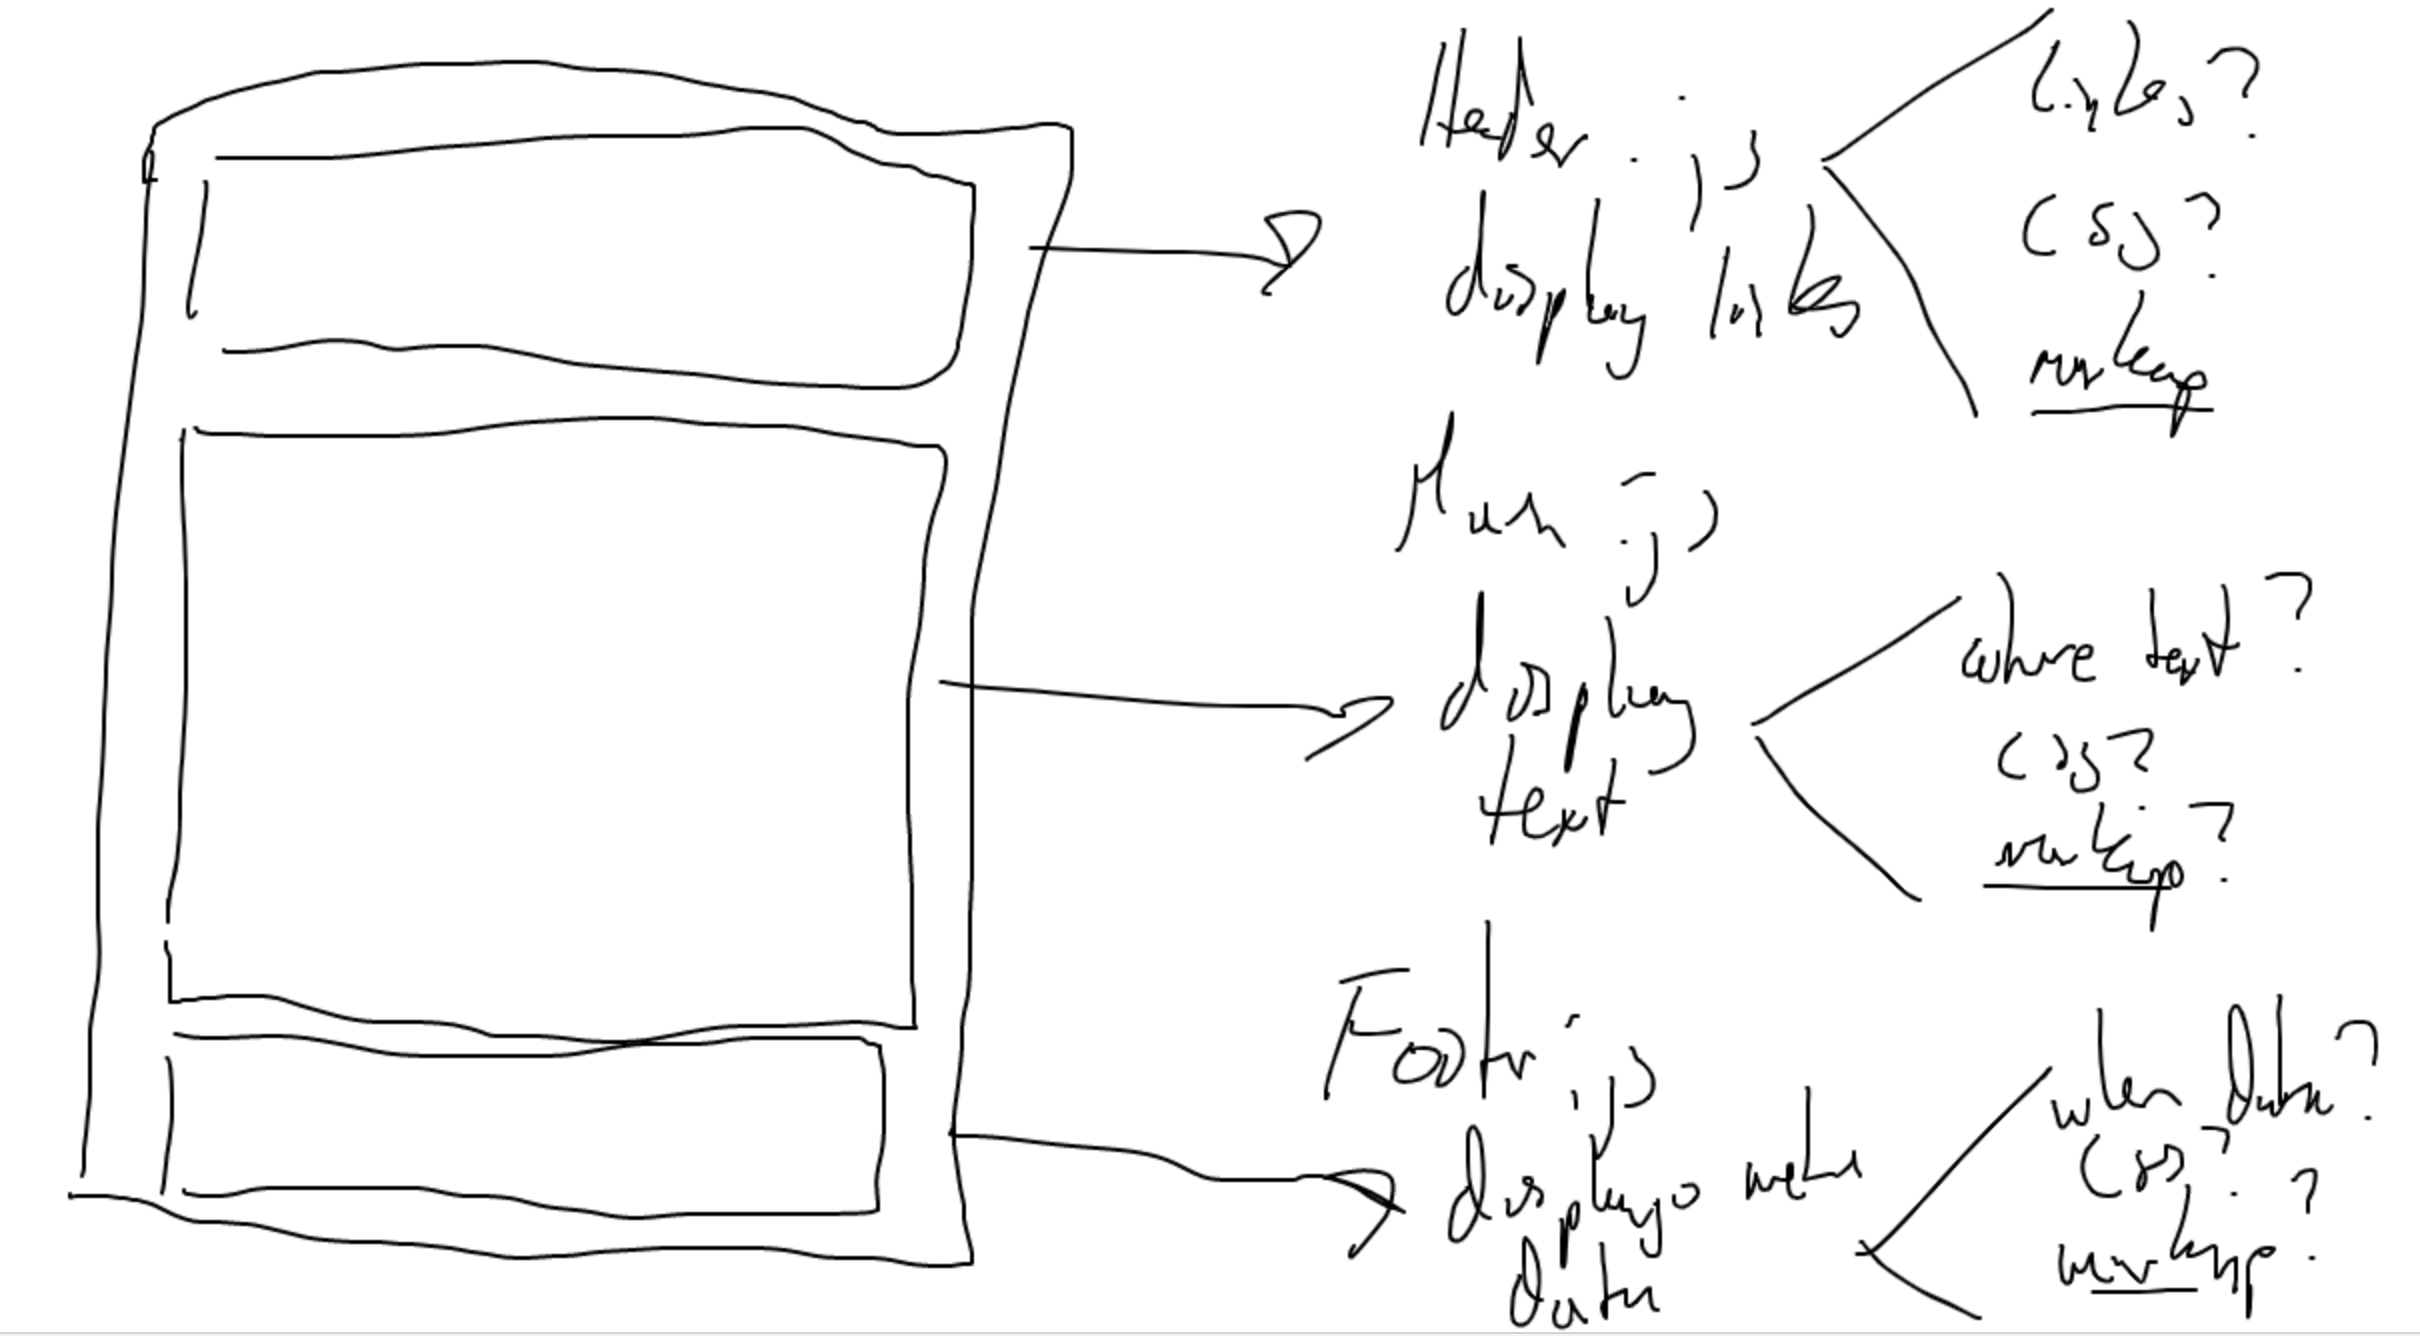 Header.js
display links
links?
css?
markup
Main.js
display
text
where text?
css?
markup?
Footer.js
displays meta
data
when data?
css?
markup?